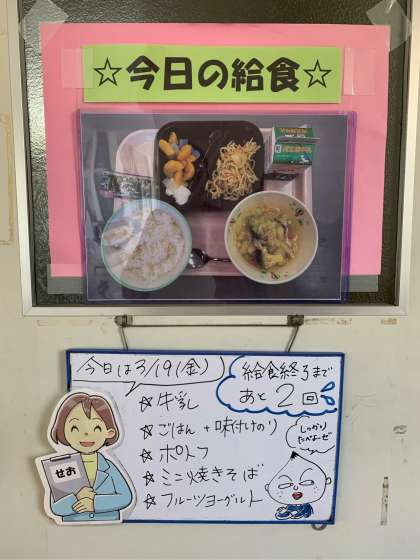 ☆今日の給食☆
今日は3/19(金)
給食終了まで
あと2回
☆牛乳
☆ごはん+味付けのり
☆ポトフ
☆ミニ焼きそば
☆フルーツヨーグルト
しっかり
たべよーぜ
せお